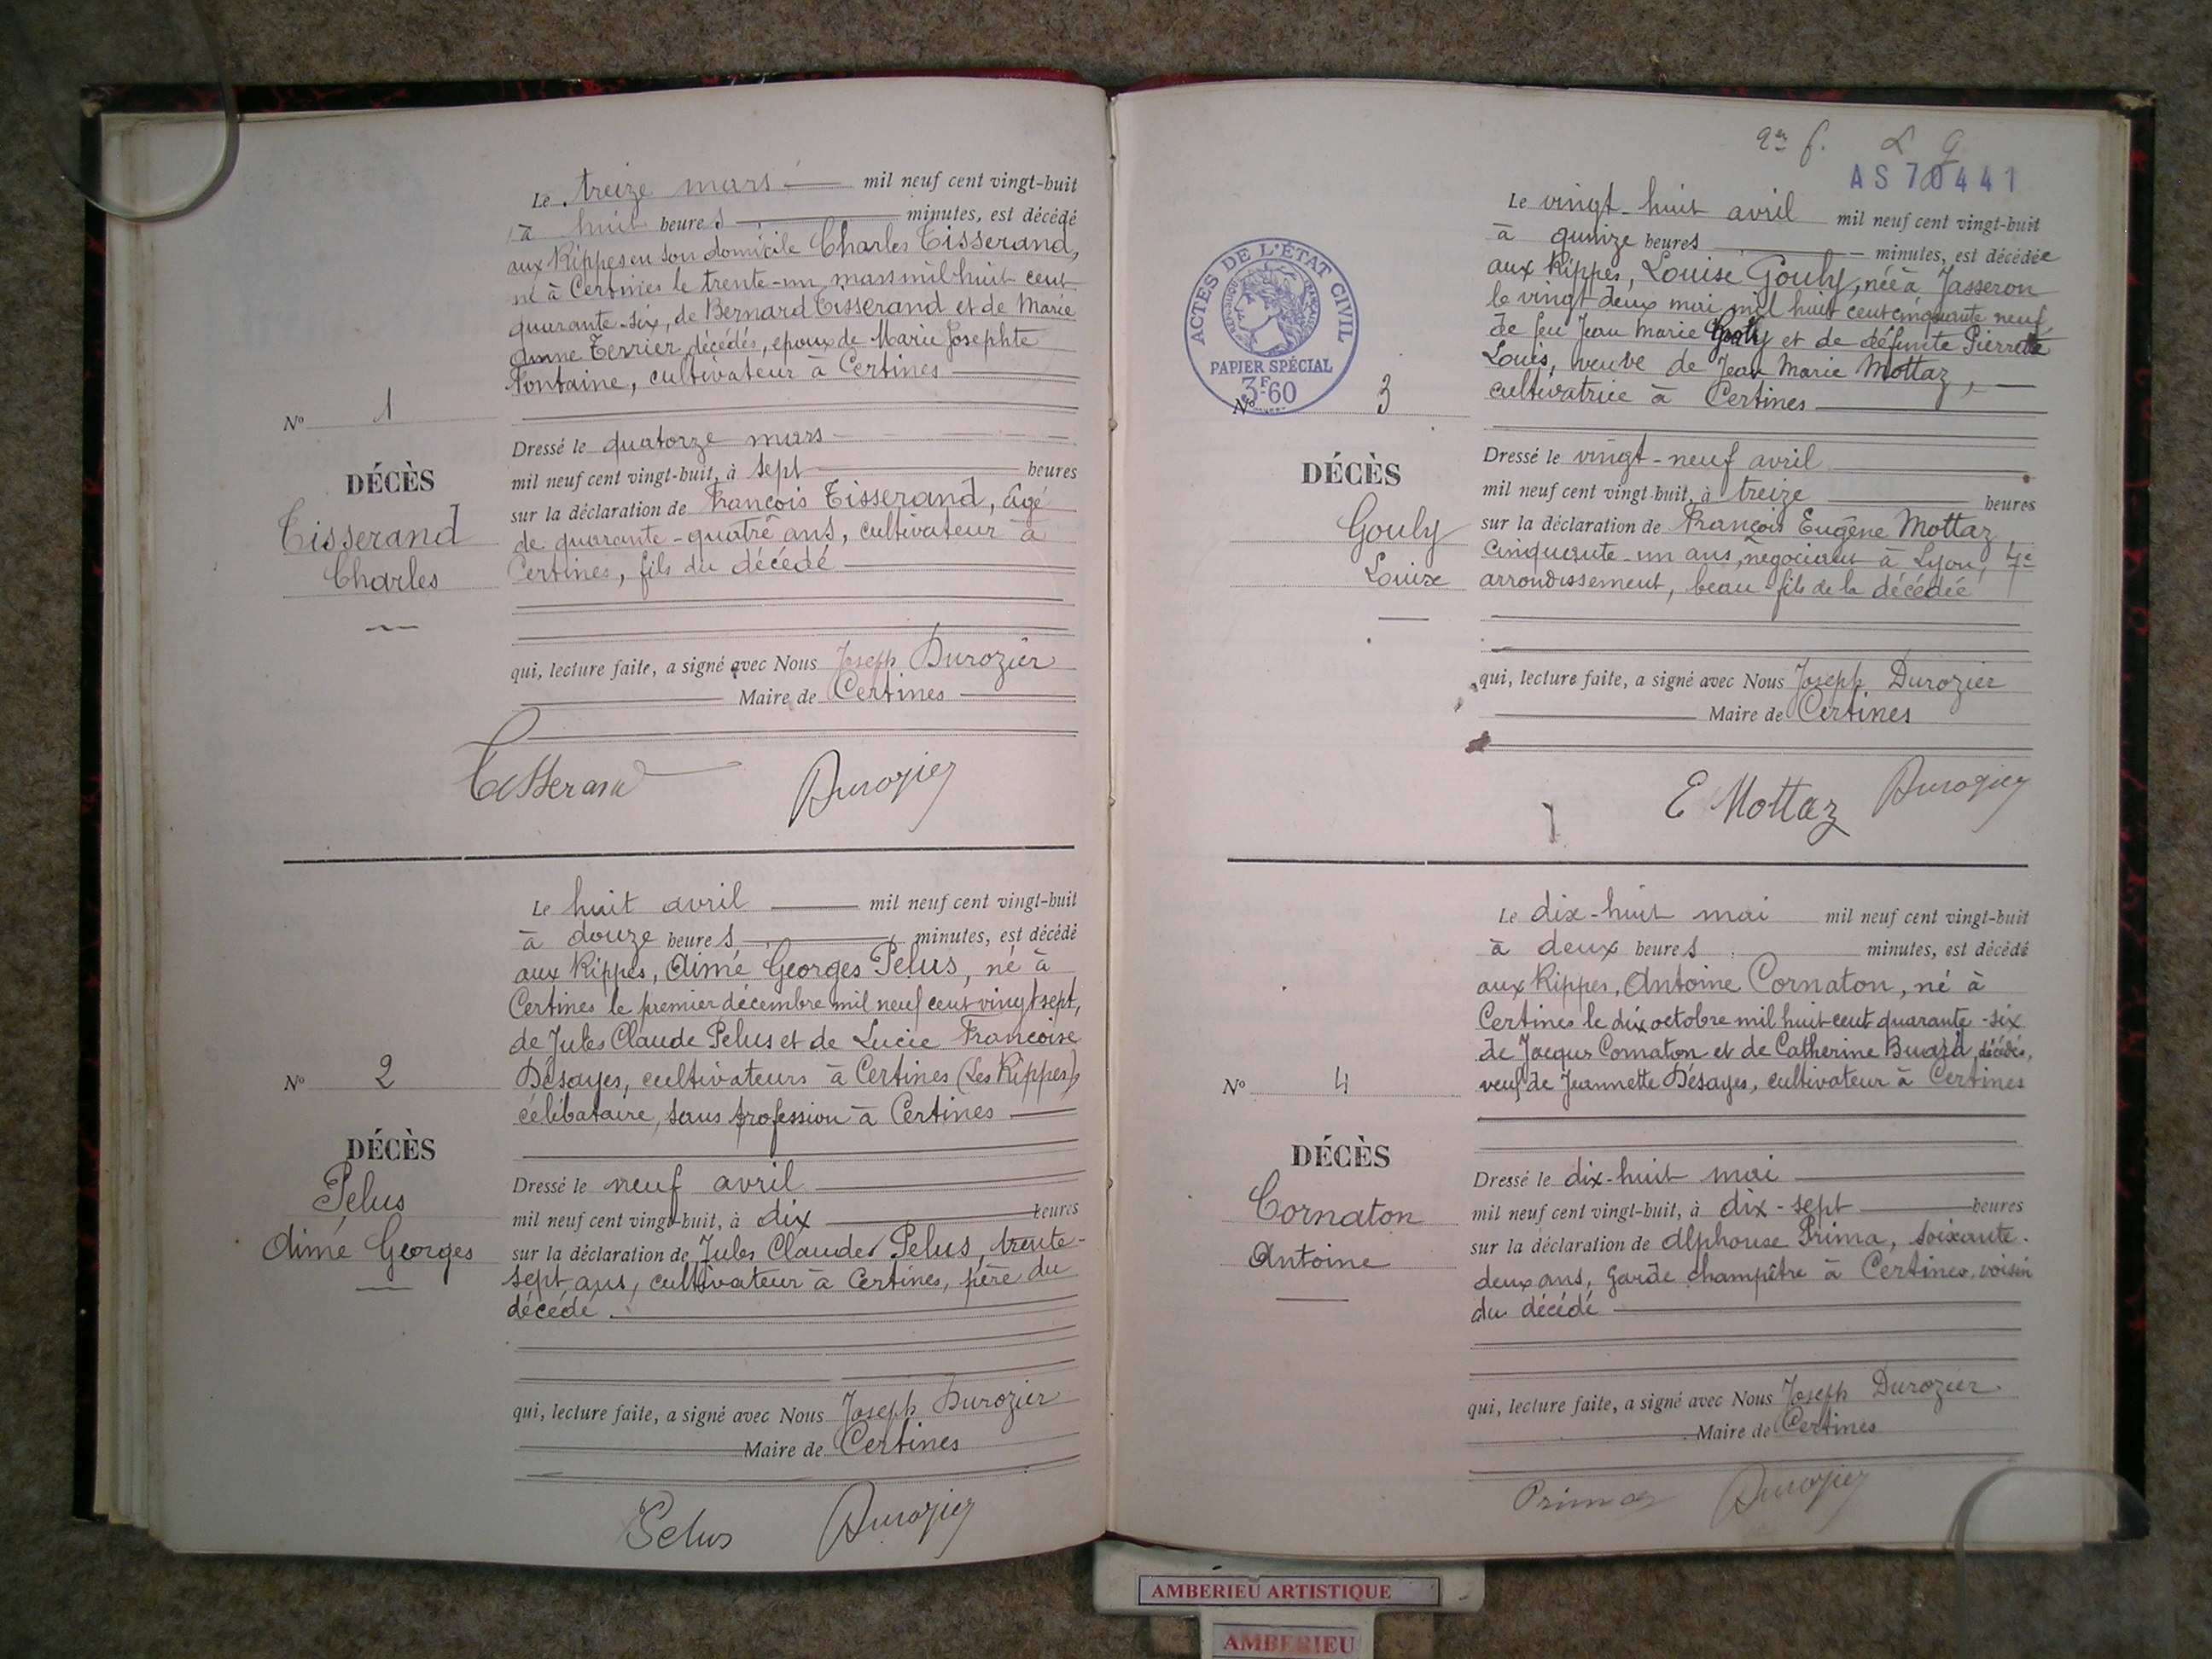 Le treize mars mil neuf cent vingt-huit
à huit heures minutes, est décédé
aux Rippes en son domicile Charles Tisserand,
né à Certines le trente-un mars mil huit cent
quarante-six, de Bernard Tisserand et de Marie
Anne Terrier, décédés, époux de Marie Josephte
Fontaine, cultivateur à Certines
N° 1
Dressé le quatorze mars
mil neuf cent vingt-huit, à sept heures
sur la déclaration de François Tisserand, âgé
de quarante-quatre ans, cultivateur à
Certines, fils du décédé
DÉCÈS
Tisserand
Charles
qui, lecture faite, a signé avec Nous Joseph Durozier
Maire de Certines
Tisserand Durozier
Le huit avril mil neuf cent vingt-huit
à douze heures minutes, est décédé
aux Rippes, Aimé Georges Pelus, né à
Certines le premier décembre mil neuf cent vingt sept,
de Jules Claude Pelus et de Lucie Françoise
Désayes, cultivateurs à Certines (Les Rippes)
célibataire, sans profession à Certines
N° 2
DÉCÈS
Pelus
Aimé Georges
Dressé le neuf avril
mil neuf cent vingt-huit, à dix heures
sur la déclaration de Jules Claude Pelus, trente-
sept ans, cultivateur à Certines, père du
décédé
qui, lecture faite, a signé avec Nous Joseph Durozier
Maire de Certines
Pelus Durozier
AS 70441
Le vingt-huit avril mil neuf cent vingt-huit
à quinze heures minutes, est décédée
aux Rippes, Louise Gouly, née à Jasseron
le vingt-deux mai mil huit cent cinquante neuf
de feu Jean Marie Gouly et de défunte Pierrette
Louis, veuve de Jean Marie Mottaz,
cultivatrice à Certines
ACTES DE L'ÉTAT CIVIL
RÉPUBLIQUE FRANÇAISE
PAPIER SPÉCIAL
3F60
N° 3
DÉCÈS
Gouly
Louise
Dressé le vingt-neuf avril
mil neuf cent vingt-huit, à treize heures
sur la déclaration de François Eugène Mottaz
cinquante-un ans, négociant à Lyon,
arrondissement, beau-fils de la décédée
qui, lecture faite, a signé avec Nous Joseph Durozier
Maire de Certines
E Mottaz Durozier
Le dix-huit mai mil neuf cent vingt-huit
à deux heures minutes, est décédé
aux Rippes, Antoine Cornaton, né à
Certines le dix octobre mil huit cent quarante-six
de Jacques Cornaton et de Catherine décédés,
veuf de Jeannette Désayes, cultivateur à Certines
N° 4
DÉCÈS
Cornaton
Antoine
Dressé le dix-huit mai
mil neuf cent vingt-huit, à dix-sept heures
sur la déclaration de Alphonse Prima, soixante-
deux ans, garde champêtre à Certines, voisin
du décédé
qui, lecture faite, a signé avec Nous Joseph Durozier
Maire de Certines
Prima Durozier
AMBERIEU ARTISTIQUE
AMBERIEU